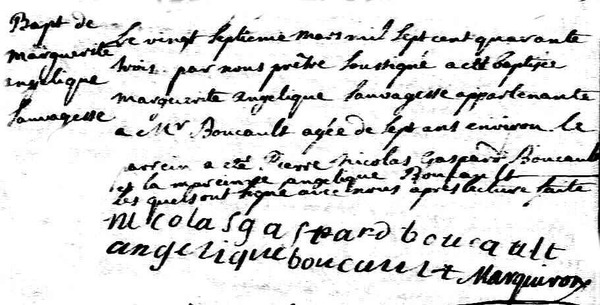 Bapt de
marguerite
angelique
Sauvagesse
Le vingt Septieme mars mil Sept cent quarante
trois par nous prêtre Soussigné a été baptisée
marguerite angelique Sauvagesse appartenante
a Mr Boucault agée de Sept ans environ Le
parrein a eté Pierre Nicolas Gaspard Boucault
et la mareine angelique Boucault
Lesquels ont signé avec nous apres lecture faite
nicolas gaspard boucault
angelique boucault Marquiron